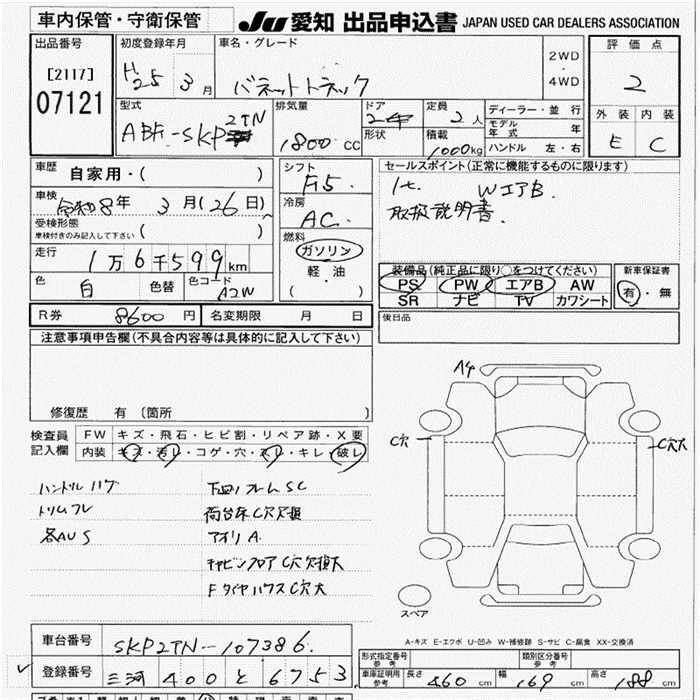 車内保管・守衛保管
JU 愛知 出品申込書 JAPAN USED CAR DEALERS ASSOCIATION
出品番号
[2117]
07121
初度登録年月
H25 3月
車名・グレード
バネットトラック
2WD
・
4WD
評価点
2
外装 内装
E C
型式
ABF-SKP2TN
排気量
1800 CC
ドア
2
形状
定員
2人
積載
1000kg
ディーラー・並行
モデル年式 年
ハンドル 左・右
車歴
自家用・( )
車検
令和8年 3月(26日)
受検形態
車検付きのみ記入して下さい ( )
走行
1万6千599km
色
白
色替
色コード
A2W
シフト
F5
冷房
AC
燃料
ガソリン
軽油
( ・ )
セールスポイント(正常に機能するものに限ります)
1t. WエアB.
取扱説明書.
装備品(純正品に限り○をつけてください)
PS PW エアB AW
SR ナビ TV カワシート
新車保証書
有・無
R券 8600円
名変期限 月 日
後日品
注意事項申告欄(不具合内容等は具体的に記入して下さい)
修復歴 有 (箇所 )
検査員記入欄
FW キズ・飛石・ヒビ割・リペア跡・X要
内装 キズ・汚レ・コゲ・穴・スレ・キレ・破レ
ハンドルハゲ
トリムフレ
各AUS
下回リフレムSC
荷台床C穴欠損
アオリA
キャビンフロアC穴欠損大
FタイヤハウスC穴大
A4
C穴
C穴大
スペア
A-キズ E-エクボ U-凹み W-補修跡 S-サビ C-腐食 XX-交換済
車台番号
SKP2TN-107386.
登録番号
三河 400 と 6753
形式指定番号
参考
類別区分番号
参考
車庫証明用
参考
長さ 460 cm
幅 169 cm
高さ 188 cm